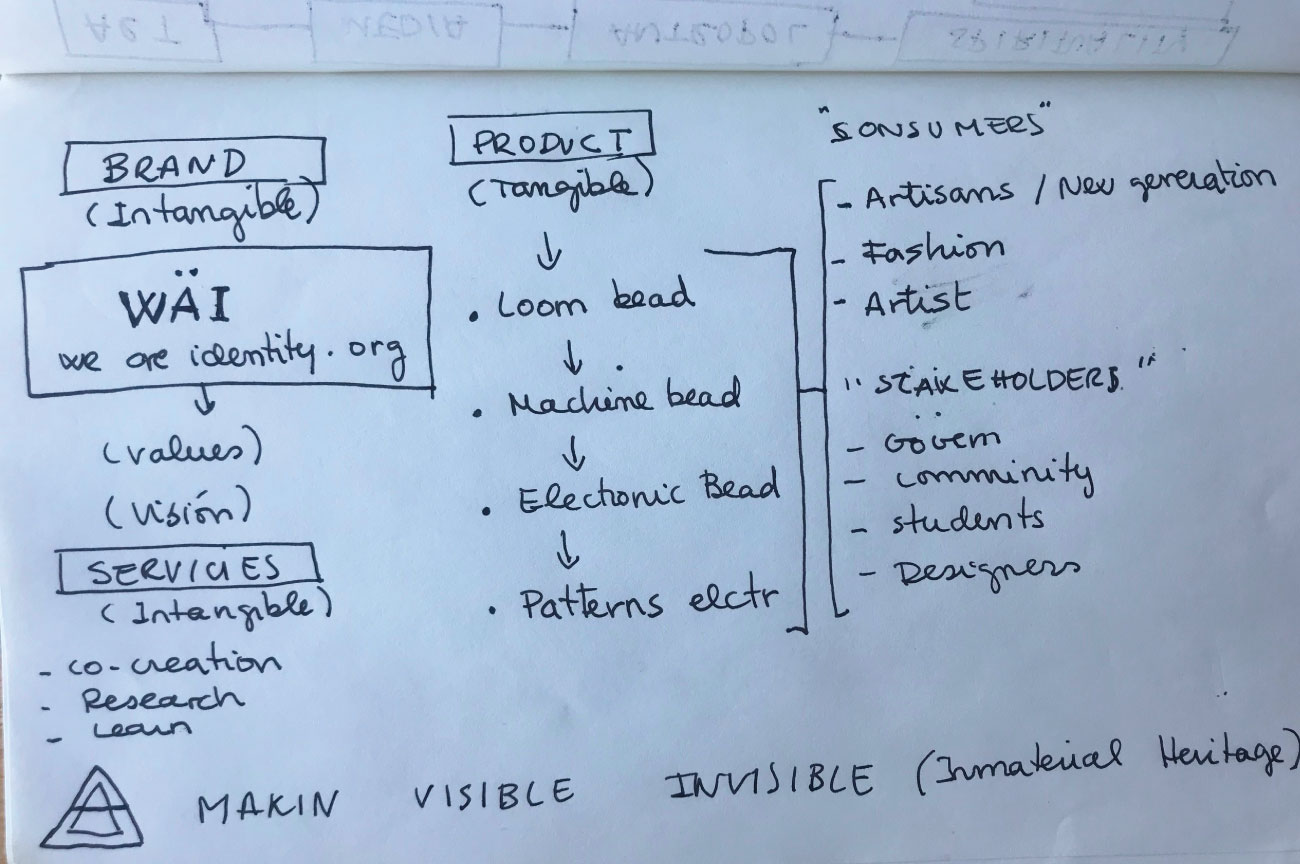 BRAND
(Intangible)
WÄI
we are identity. org
(values)
(Visión)
SERVICIES
(Intangible)
- co-creation
- Research
- Learn
PRODUCT
(Tangible)
. Loom bead
. Machine bead
. Electronic Bead
. Patterns elctr
"CONSUMERS"
- Artisans / New generation
- Fashion
- Artist
"STAKEHOLDERS"
- Govern
- comminity
- students
- Designers
MAKIN VISIBLE INVISIBLE (Inmaterial Heritage)